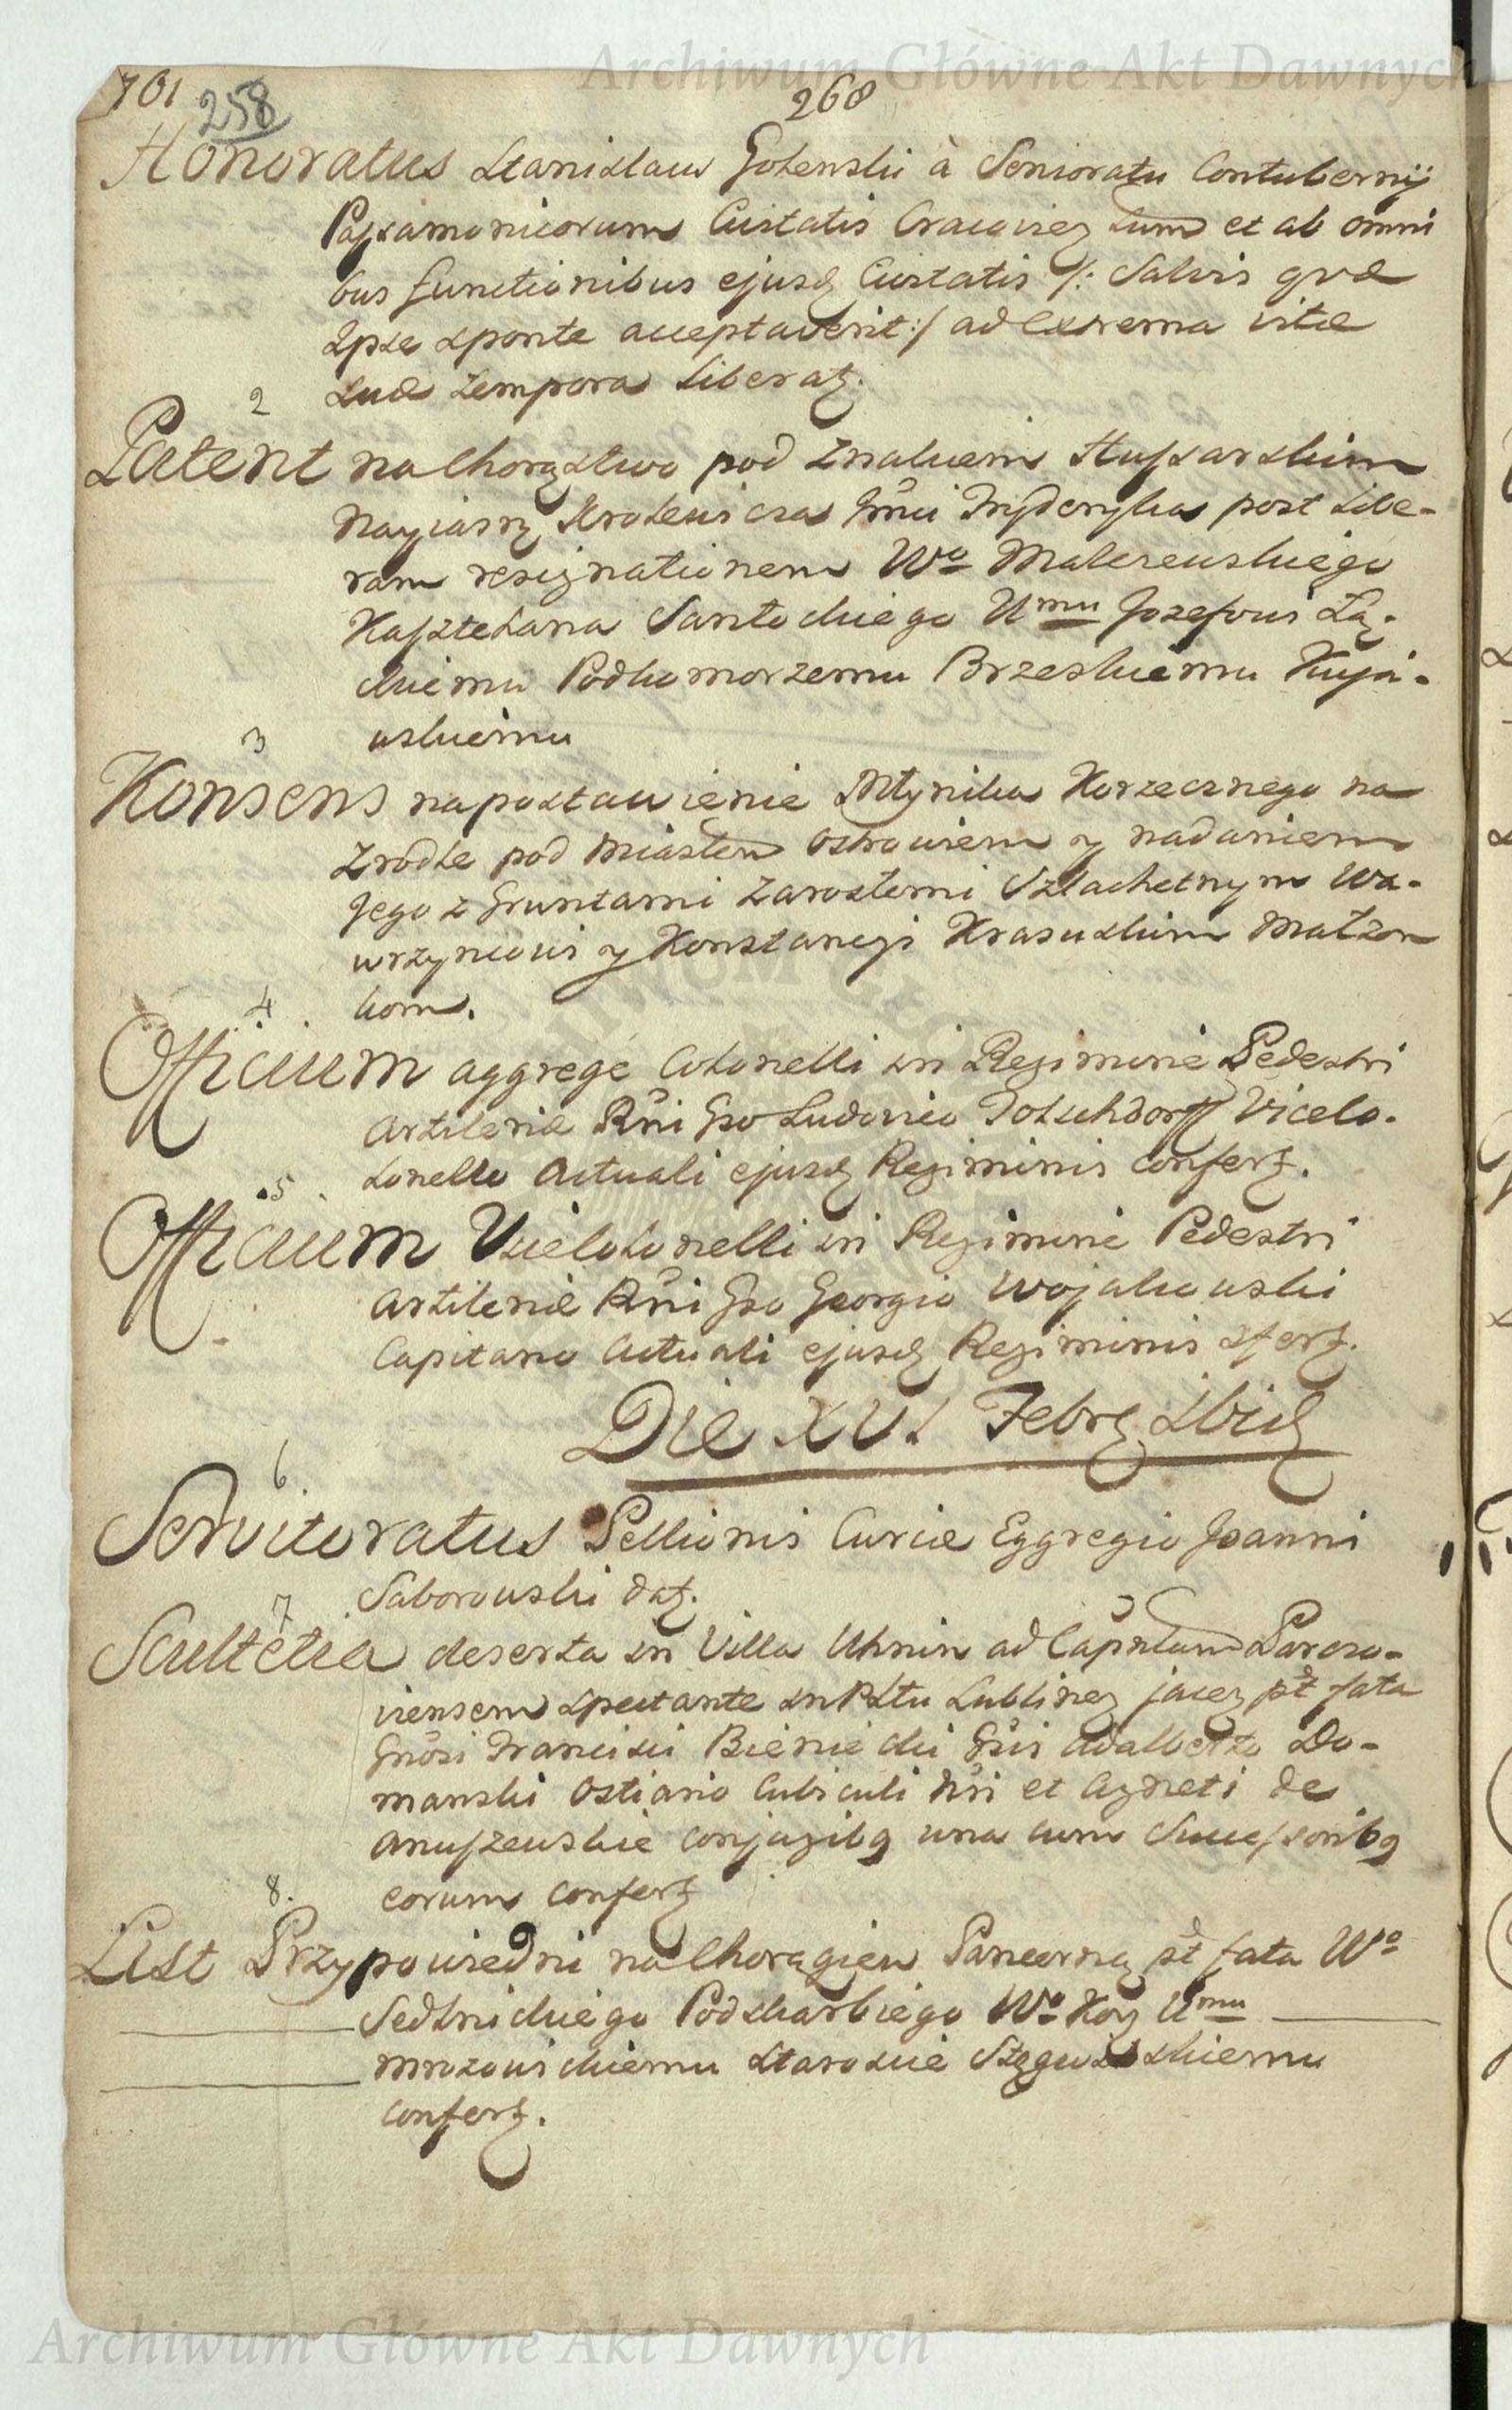 Archiwum Główne Akt Dawnych
701 258 268
Honoratus Stanislaw Golenski à Senioratu Contubernij
Passamonicorum Civitatis Cracovien tum et ab omni
bus functionibus ejusd Civitatis /: Salvis qvæ
Ipse sponte acceptaverit :/ ad extrema vitæ
suæ tempora Liberat.
2
Patent na Chorąstwo pod Znakiem Hussarskim
Nayiasn Krolewicza Jmci Fryderyka post Libe-
ram resignationem Wo Malczewskiego
Kasztelana Santockiego Umu Jozefowi Łą-
ckiemu Podkomorzemu Brzeskiemu Kuja-
wskiemu
3
Konsens na postawienie Młynika Korzecznego na
Zrodle pod Miastem Ostrowiem y nadaniem
Jego z Gruntami Zarosłemi Szlachetnym Wa-
wrzyncowi y Konstancyi Krasuskim Małzon
kom.
4
Officium aggregé Colonelli in Regimine Pedestri
Artileriæ Rni Gso Ludovico Golschdorff Vicelo-
lonello Actuali ejusd Regiminis confert.
5
Officium Vicelolonelli in Regimine Pedestri
Artileriæ Rni Gso Georgio Wojakowski
Capitano Actuali ejusd Regiminis cfert.
Die XVI Febr Ibid
6
Servitoratus Pellionis Curiæ Eggregio Joanni
Saborowski dat.
7
Scultetia deserta in Villa Uhnin ad Capitum Parczo-
viensem spectante in Pltu Lublinen jacen pt fata
Gnosi Francisci Bieniecki Gsis Adalberto Do-
manski Ostiario Cubiculi Nri et Agneti de
Anuszewskie conjugibq una cum Successoribq
eorum confert
8.
List Przypowiedni na Chorągiew Pancerną pt fata Wo
Sedlnickiego Podskarbiego Wo Kor Umu
Mrozowickiemu Staroscie Stęgwilskiemu
confert.
Archiwum Główne Akt Dawnych